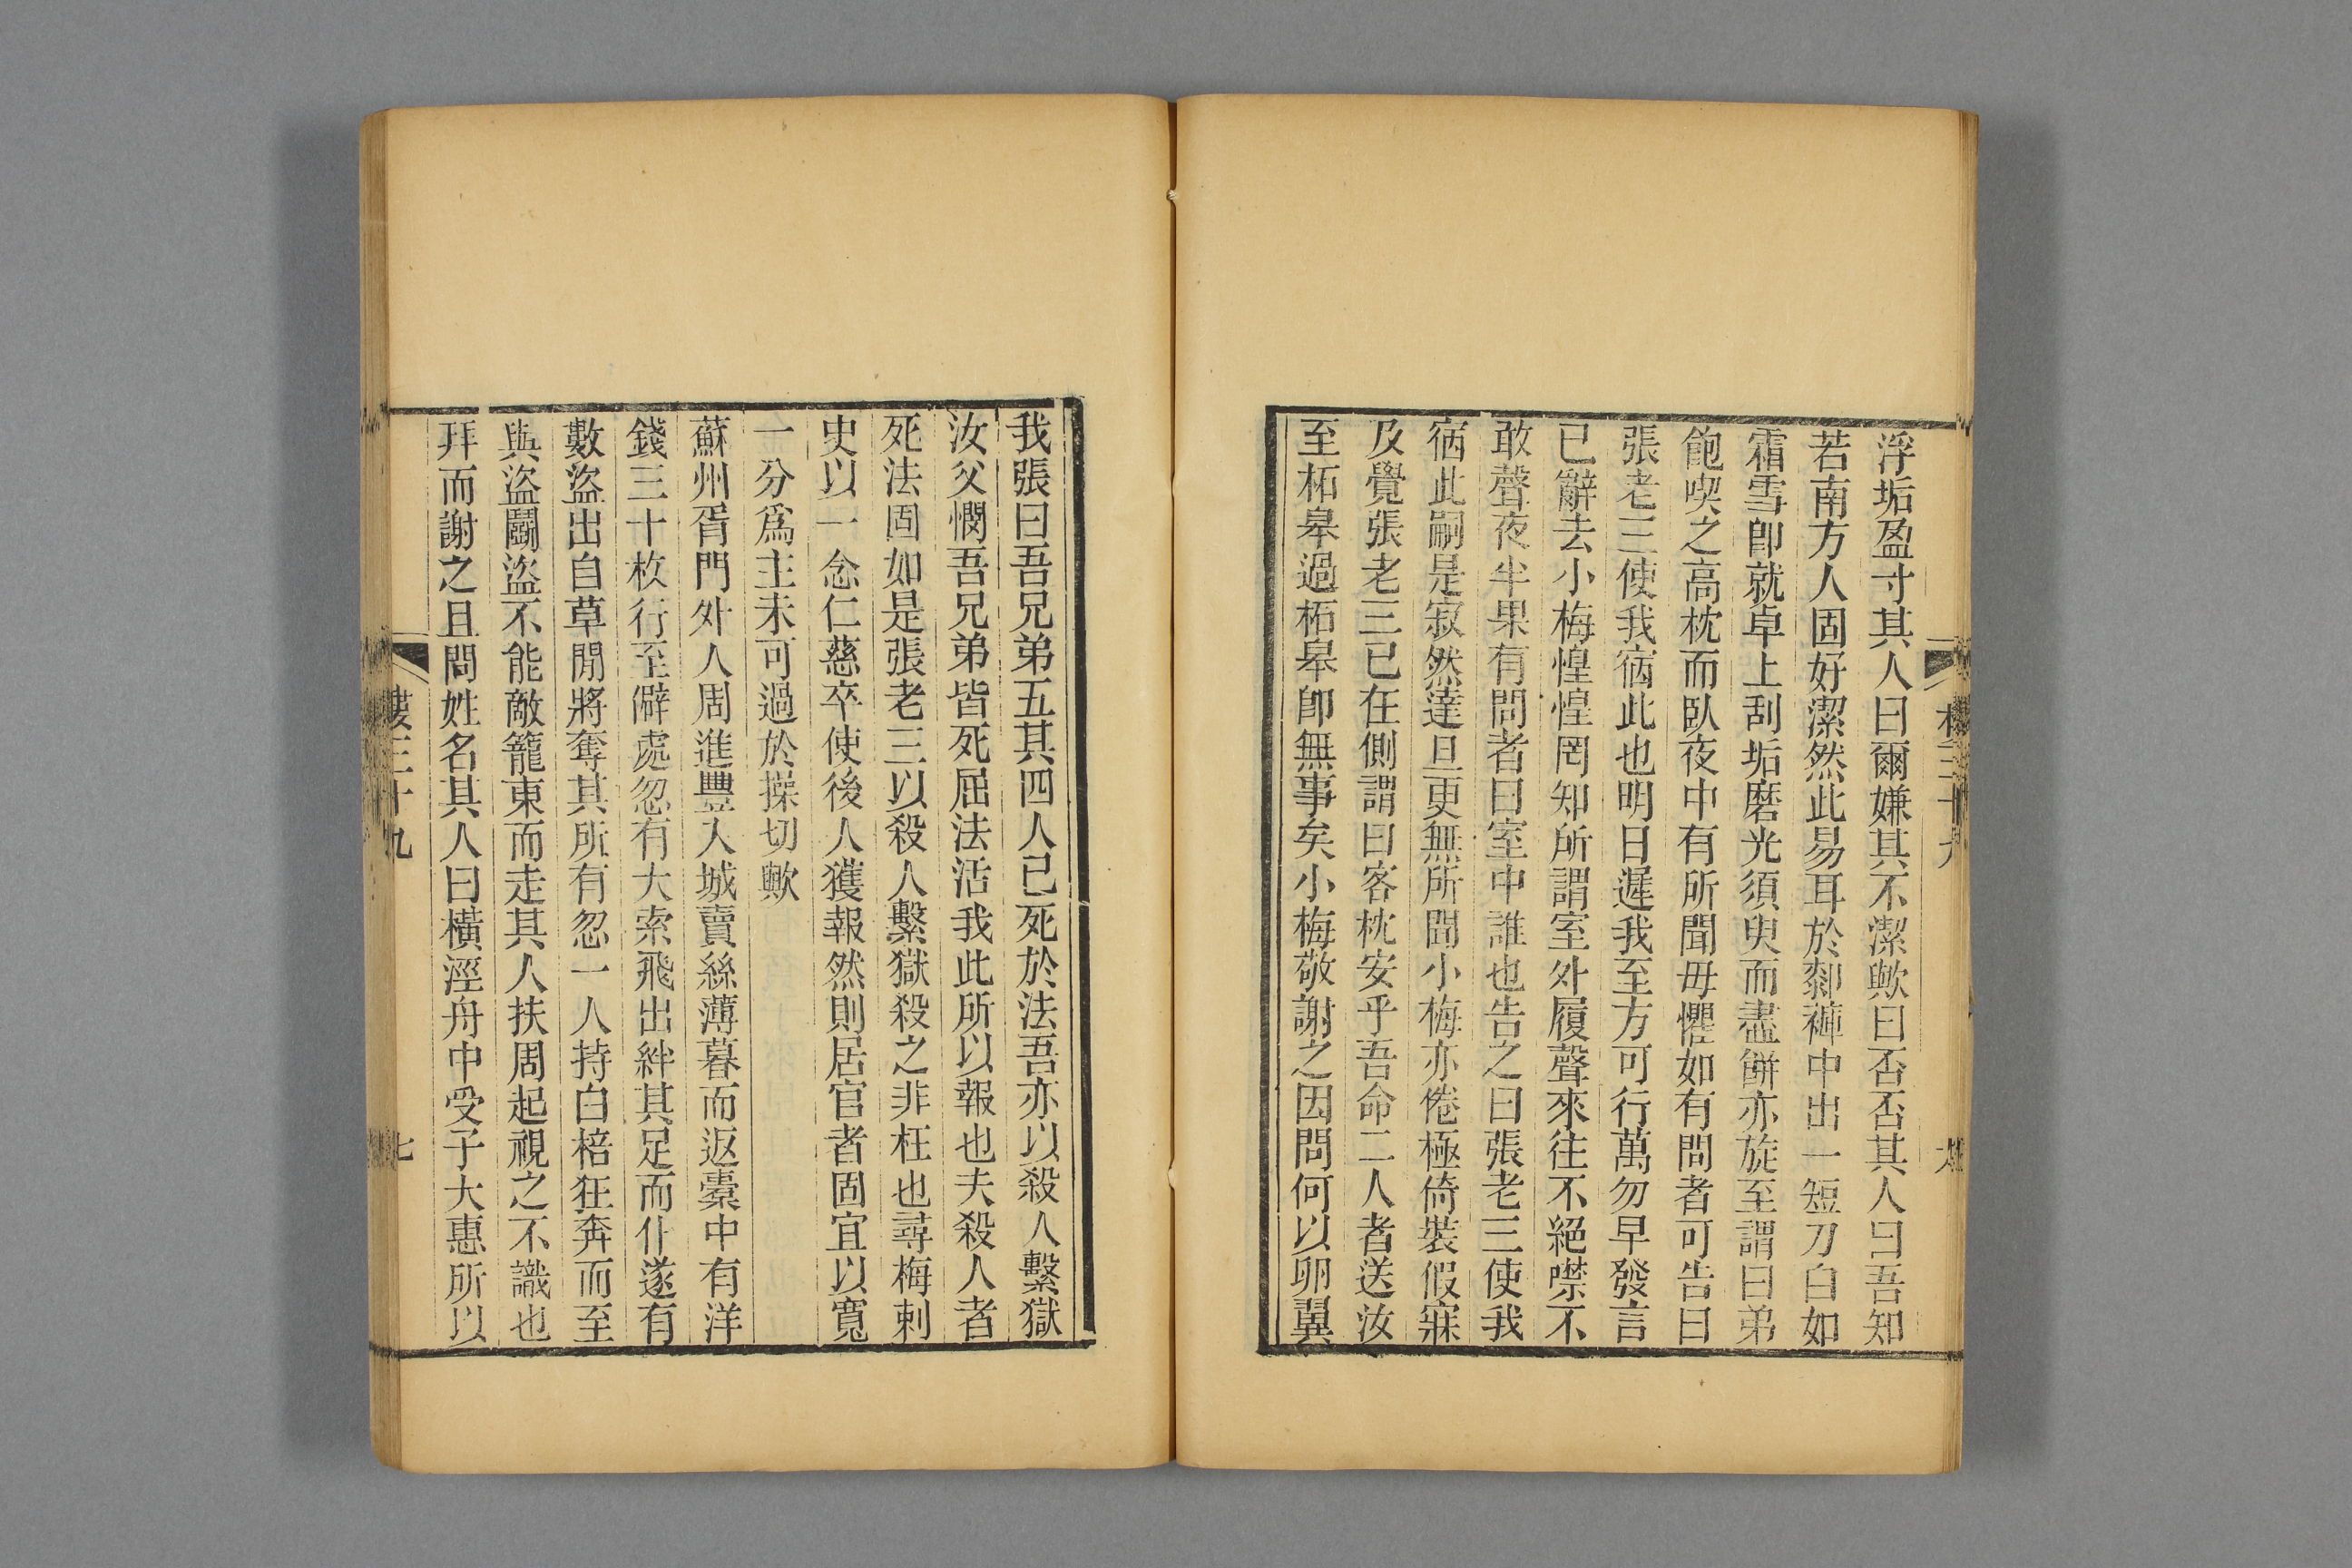 浮垢盈寸其人曰爾嫌其不潔歟曰否否其人曰吾知
若南方人固好潔然此易耳於褲中出一短刀白如
霜雪卽就卓上刮垢磨光須臾而盡餅亦旋至謂曰弟
飽喫之高枕而臥夜中有所聞毋懼如有問者可告曰
張老三使我宿此也明日遲我至方可行萬勿早發言
已辭去小梅惶惶罔知所謂室外履聲來往不絕噤不
敢聲夜半果有問者曰室中誰也告之曰張老三使我
宿此嗣是寂然達旦更無所聞小梅亦倦極倚裝假寐
及覺張老三已在側謂曰客枕安乎吾命二人者送汝
至柘皋過柘皋卽無事矣小梅敬謝之因問何以卵翼
我張曰吾兄弟五其四人已死於法吾亦以殺人繫獄
汝父憫吾兄弟皆死屈法活我此所以報也夫殺人者
死法固如是張老三以殺人繫獄殺之非枉也尋梅刺
史以一念仁慈卒使後人獲報然則居官者固宜以寬
一分爲主未可過於操切歟
蘇州胥門外人周進豐入城賣絲薄暮而返橐中有洋
錢三十枚行至僻處忽有大索飛出絆其足而仆遂有
數盜出自草閒將奪其所有忽一人持白棓狂奔而至
與盜鬭盜不能敵籠東而走其人扶周起視之不識也
拜而謝之且問姓名其人曰橫涇舟中受子大惠所以
三十九
七